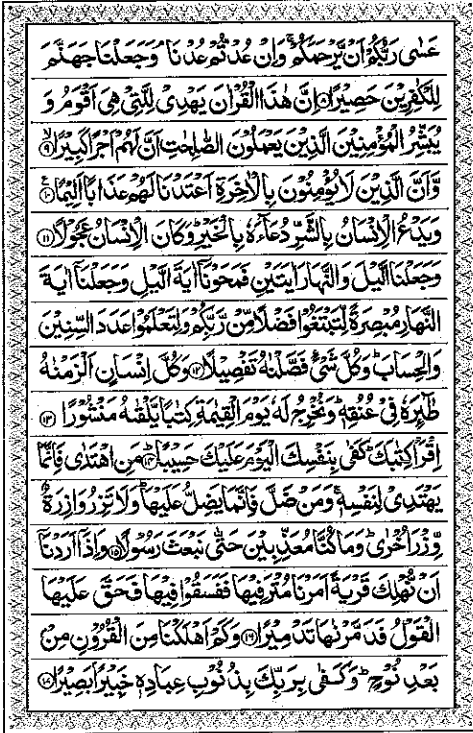 عَسٰی رَبُّكُمْ اَنْ یَّرْحَمَكُمْ ۚ وَاِنْ عُدْتُّمْ عُدْنَا ۘ وَجَعَلْنَا جَهَنَّمَ
لِلْكٰفِرِیْنَ حَصِیْرًا ۝۸ اِنَّ هٰذَا الْقُرْاٰنَ یَهْدِیْ لِلَّتِیْ هِیَ اَقْوَمُ وَ
یُبَشِّرُ الْمُؤْمِنِیْنَ الَّذِیْنَ یَعْمَلُوْنَ الصّٰلِحٰتِ اَنَّ لَهُمْ اَجْرًا كَبِیْرًا ۝۹
وَّاَنَّ الَّذِیْنَ لَا یُؤْمِنُوْنَ بِالْاٰخِرَةِ اَعْتَدْنَا لَهُمْ عَذَابًا اَلِیْمًا ۝۱۰
وَیَدْعُ الْاِنْسَانُ بِالشَّرِّ دُعَآءَهٗ بِالْخَیْرِ ؕ وَكَانَ الْاِنْسَانُ عَجُوْلًا ۝۱۱
وَجَعَلْنَا الَّیْلَ وَالنَّهَارَ اٰیَتَیْنِ فَمَحَوْنَاۤ اٰیَةَ الَّیْلِ وَجَعَلْنَاۤ اٰیَةَ
النَّهَارِ مُبْصِرَةً لِّتَبْتَغُوْا فَضْلًا مِّنْ رَّبِّكُمْ وَلِتَعْلَمُوْا عَدَدَ السِّنِیْنَ
وَالْحِسَابَ ؕ وَكُلَّ شَیْءٍ فَصَّلْنٰهُ تَفْصِیْلًا ۝۱۲ وَكُلَّ اِنْسَانٍ اَلْزَمْنٰهُ
طٰٓئِرَهٗ فِیْ عُنُقِهٖ ؕ وَنُخْرِجُ لَهٗ یَوْمَ الْقِیٰمَةِ كِتٰبًا یَّلْقٰىهُ مَنْشُوْرًا ۝۱۳
اِقْرَاْ كِتٰبَكَ ؕ كَفٰی بِنَفْسِكَ الْیَوْمَ عَلَیْكَ حَسِیْبًا ۝۱۴ مَنِ اهْتَدٰی فَاِنَّمَا
یَهْتَدِیْ لِنَفْسِهٖ ۚ وَمَنْ ضَلَّ فَاِنَّمَا یَضِلُّ عَلَیْهَا ؕ وَلَا تَزِرُ وَازِرَةٌ
وِّزْرَ اُخْرٰی ؕ وَمَا كُنَّا مُعَذِّبِیْنَ حَتّٰی نَبْعَثَ رَسُوْلًا ۝۱۵ وَاِذَاۤ اَرَدْنَاۤ
اَنْ نُّهْلِكَ قَرْیَةً اَمَرْنَا مُتْرَفِیْهَا فَفَسَقُوْا فِیْهَا فَحَقَّ عَلَیْهَا
الْقَوْلُ فَدَمَّرْنٰهَا تَدْمِیْرًا ۝۱۶ وَكَمْ اَهْلَكْنَا مِنَ الْقُرُوْنِ مِنْۢ
بَعْدِ نُوْحٍ ؕ وَكَفٰی بِرَبِّكَ بِذُنُوْبِ عِبَادِهٖ خَبِیْرًۢا بَصِیْرًا ۝۱۷